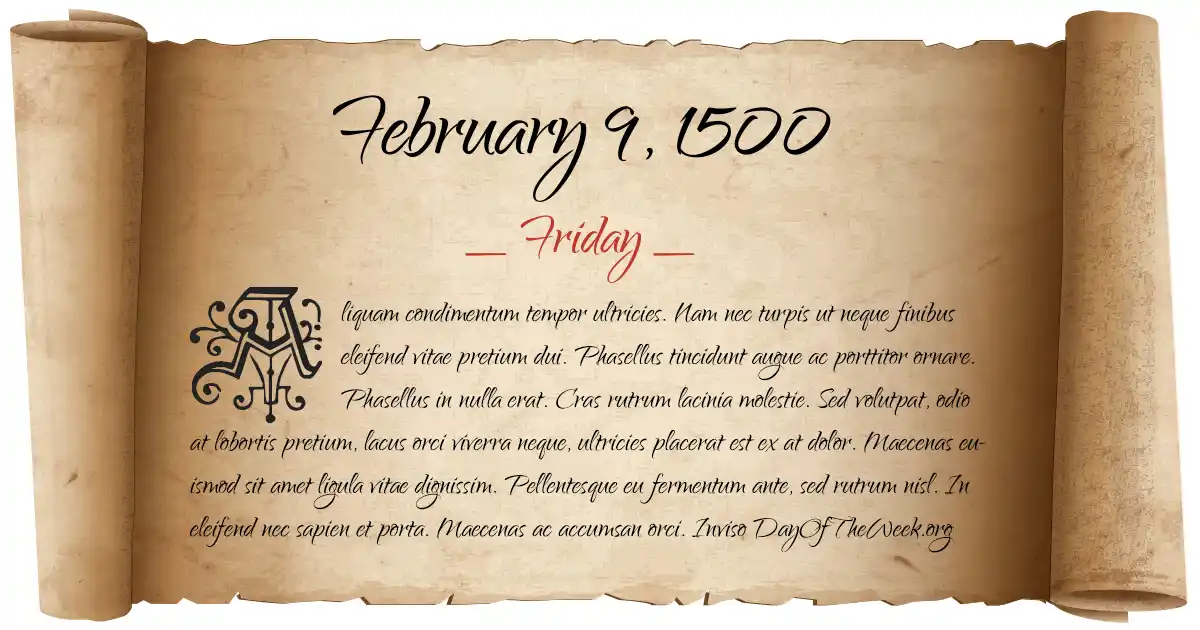 February 9, 1500
_ Friday _
Aliquam condimentum tempor ultricies. Nam nec turpis ut neque finibus
eleifend vitae pretium dui. Phasellus tincidunt augue ac porttitor ornare.
Phasellus in nulla erat. Cras rutrum lacinia molestie. Sed volutpat, odio
at lobortis pretium, lacus orci viverra neque, ultricies placerat est ex at dolor. Maecenas eu-
ismod sit amet ligula vitae dignissim. Pellentesque eu fermentum ante, sed rutrum nisl. In
eleifend nec sapien et porta. Maecenas ac accumsan orci. Inviso DayOfTheWeek.org